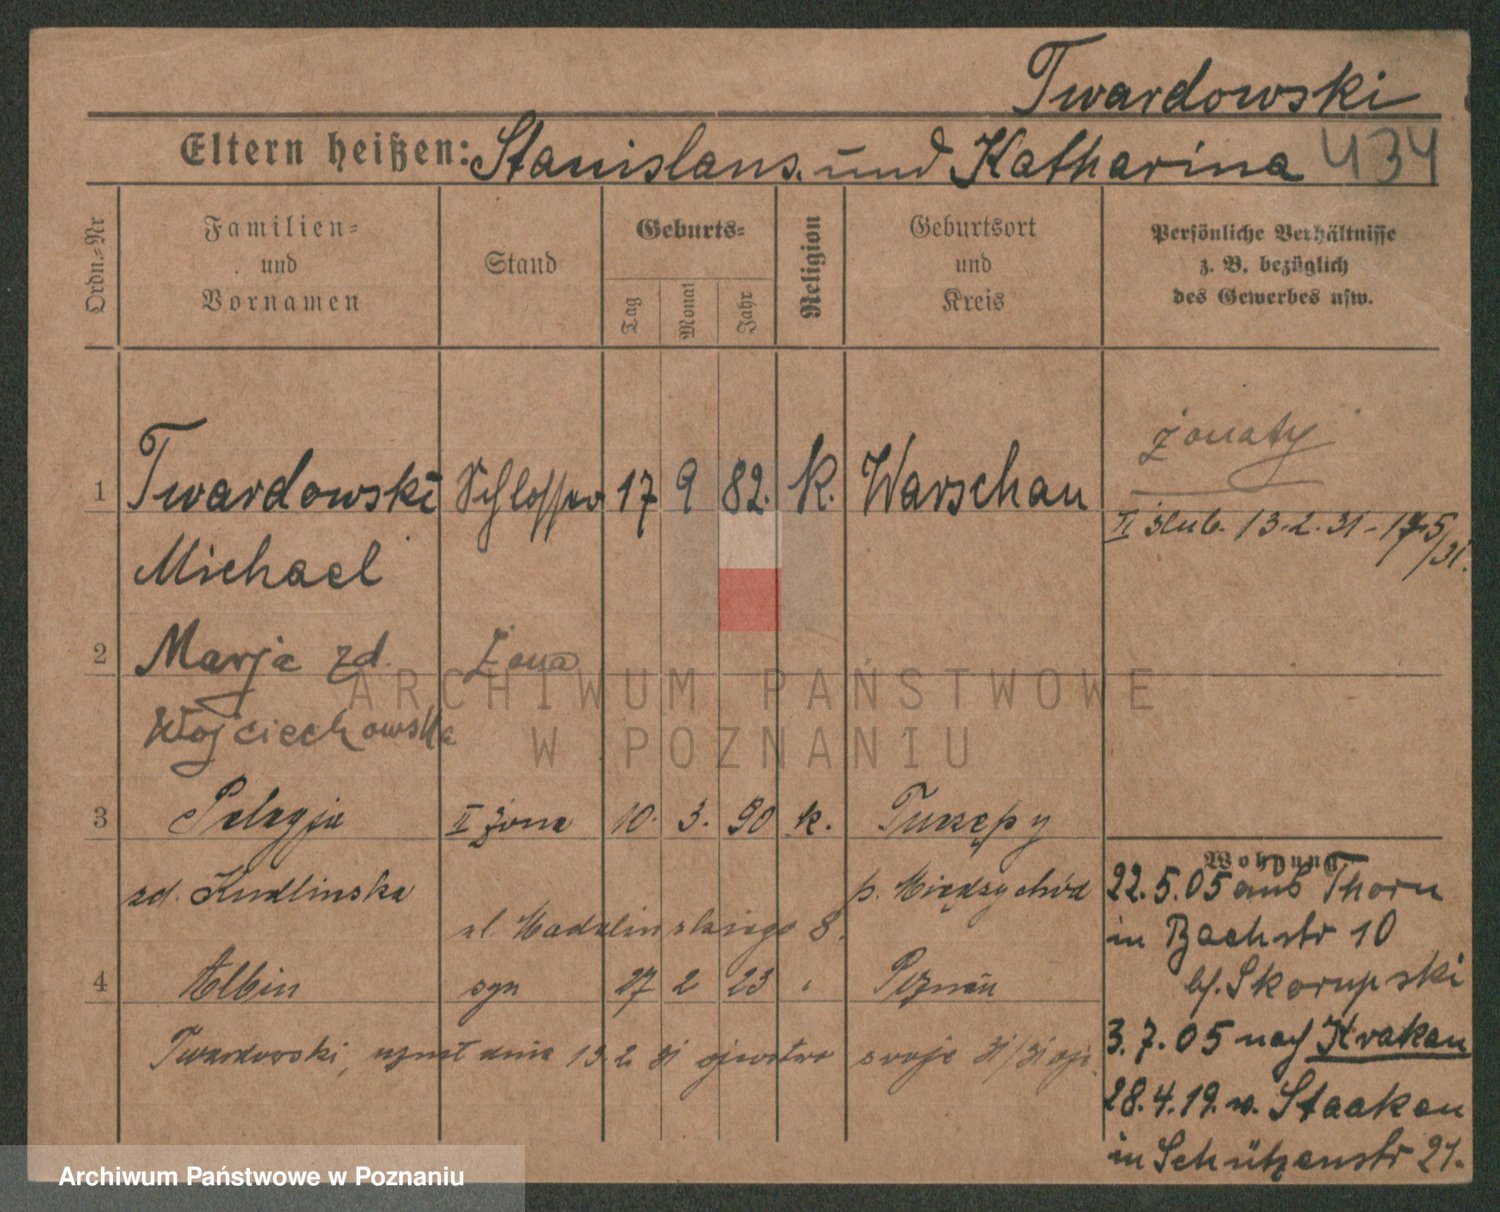 Twardowski
Eltern heißen: Stanislaus. und Katharina 434
Ordn.-Nr
Familien-
und
Vornamen
Stand
Geburts-
Tag
Monat
Jahr
Religion
Geburtsort
und
Kreis
Persönliche Verhältnisse
z. B. bezüglich
des Gewerbes usw.
żonaty
1 Twardowski Schlosser 17 9 82. K. Warschau
II ślub. 13.2.31 - 17.5/31.
Michael
2 Marja zd. Żona
Wojciechowska
ARCHIWUM PAŃSTWOWE
W POZNANIU
3 Pelagja II żona 10. 3. 90 k.
zd. Kudlinska p. Międzychód
ul Madalinskiego 8.
4 Albin syn 27 2 23 Poznań
Twardowski, uznał dnia 13 2 31 ojcostwo swoje
Wohnung
22.5.05 aus Thorn
in Bachstr 10
b/. Skorupski
3.7.05 nach Krakau
28.4.19. v. Staaken
in Schützenstr 21.
Archiwum Państwowe w Poznaniu